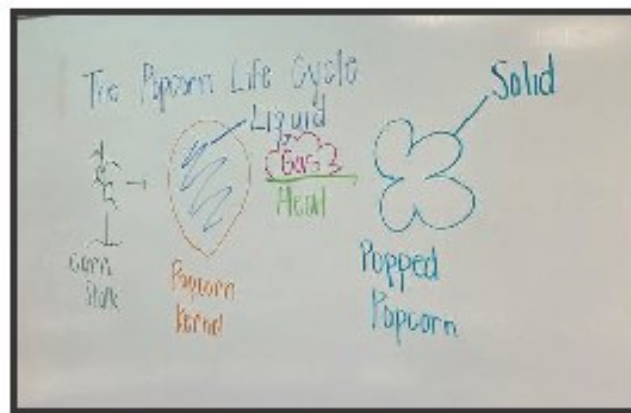 The Popcorn Life Cycle
Liquid
Solid
Gas
Heat
Corn
Stalk
Popcorn
Kernel
Popped
Popcorn